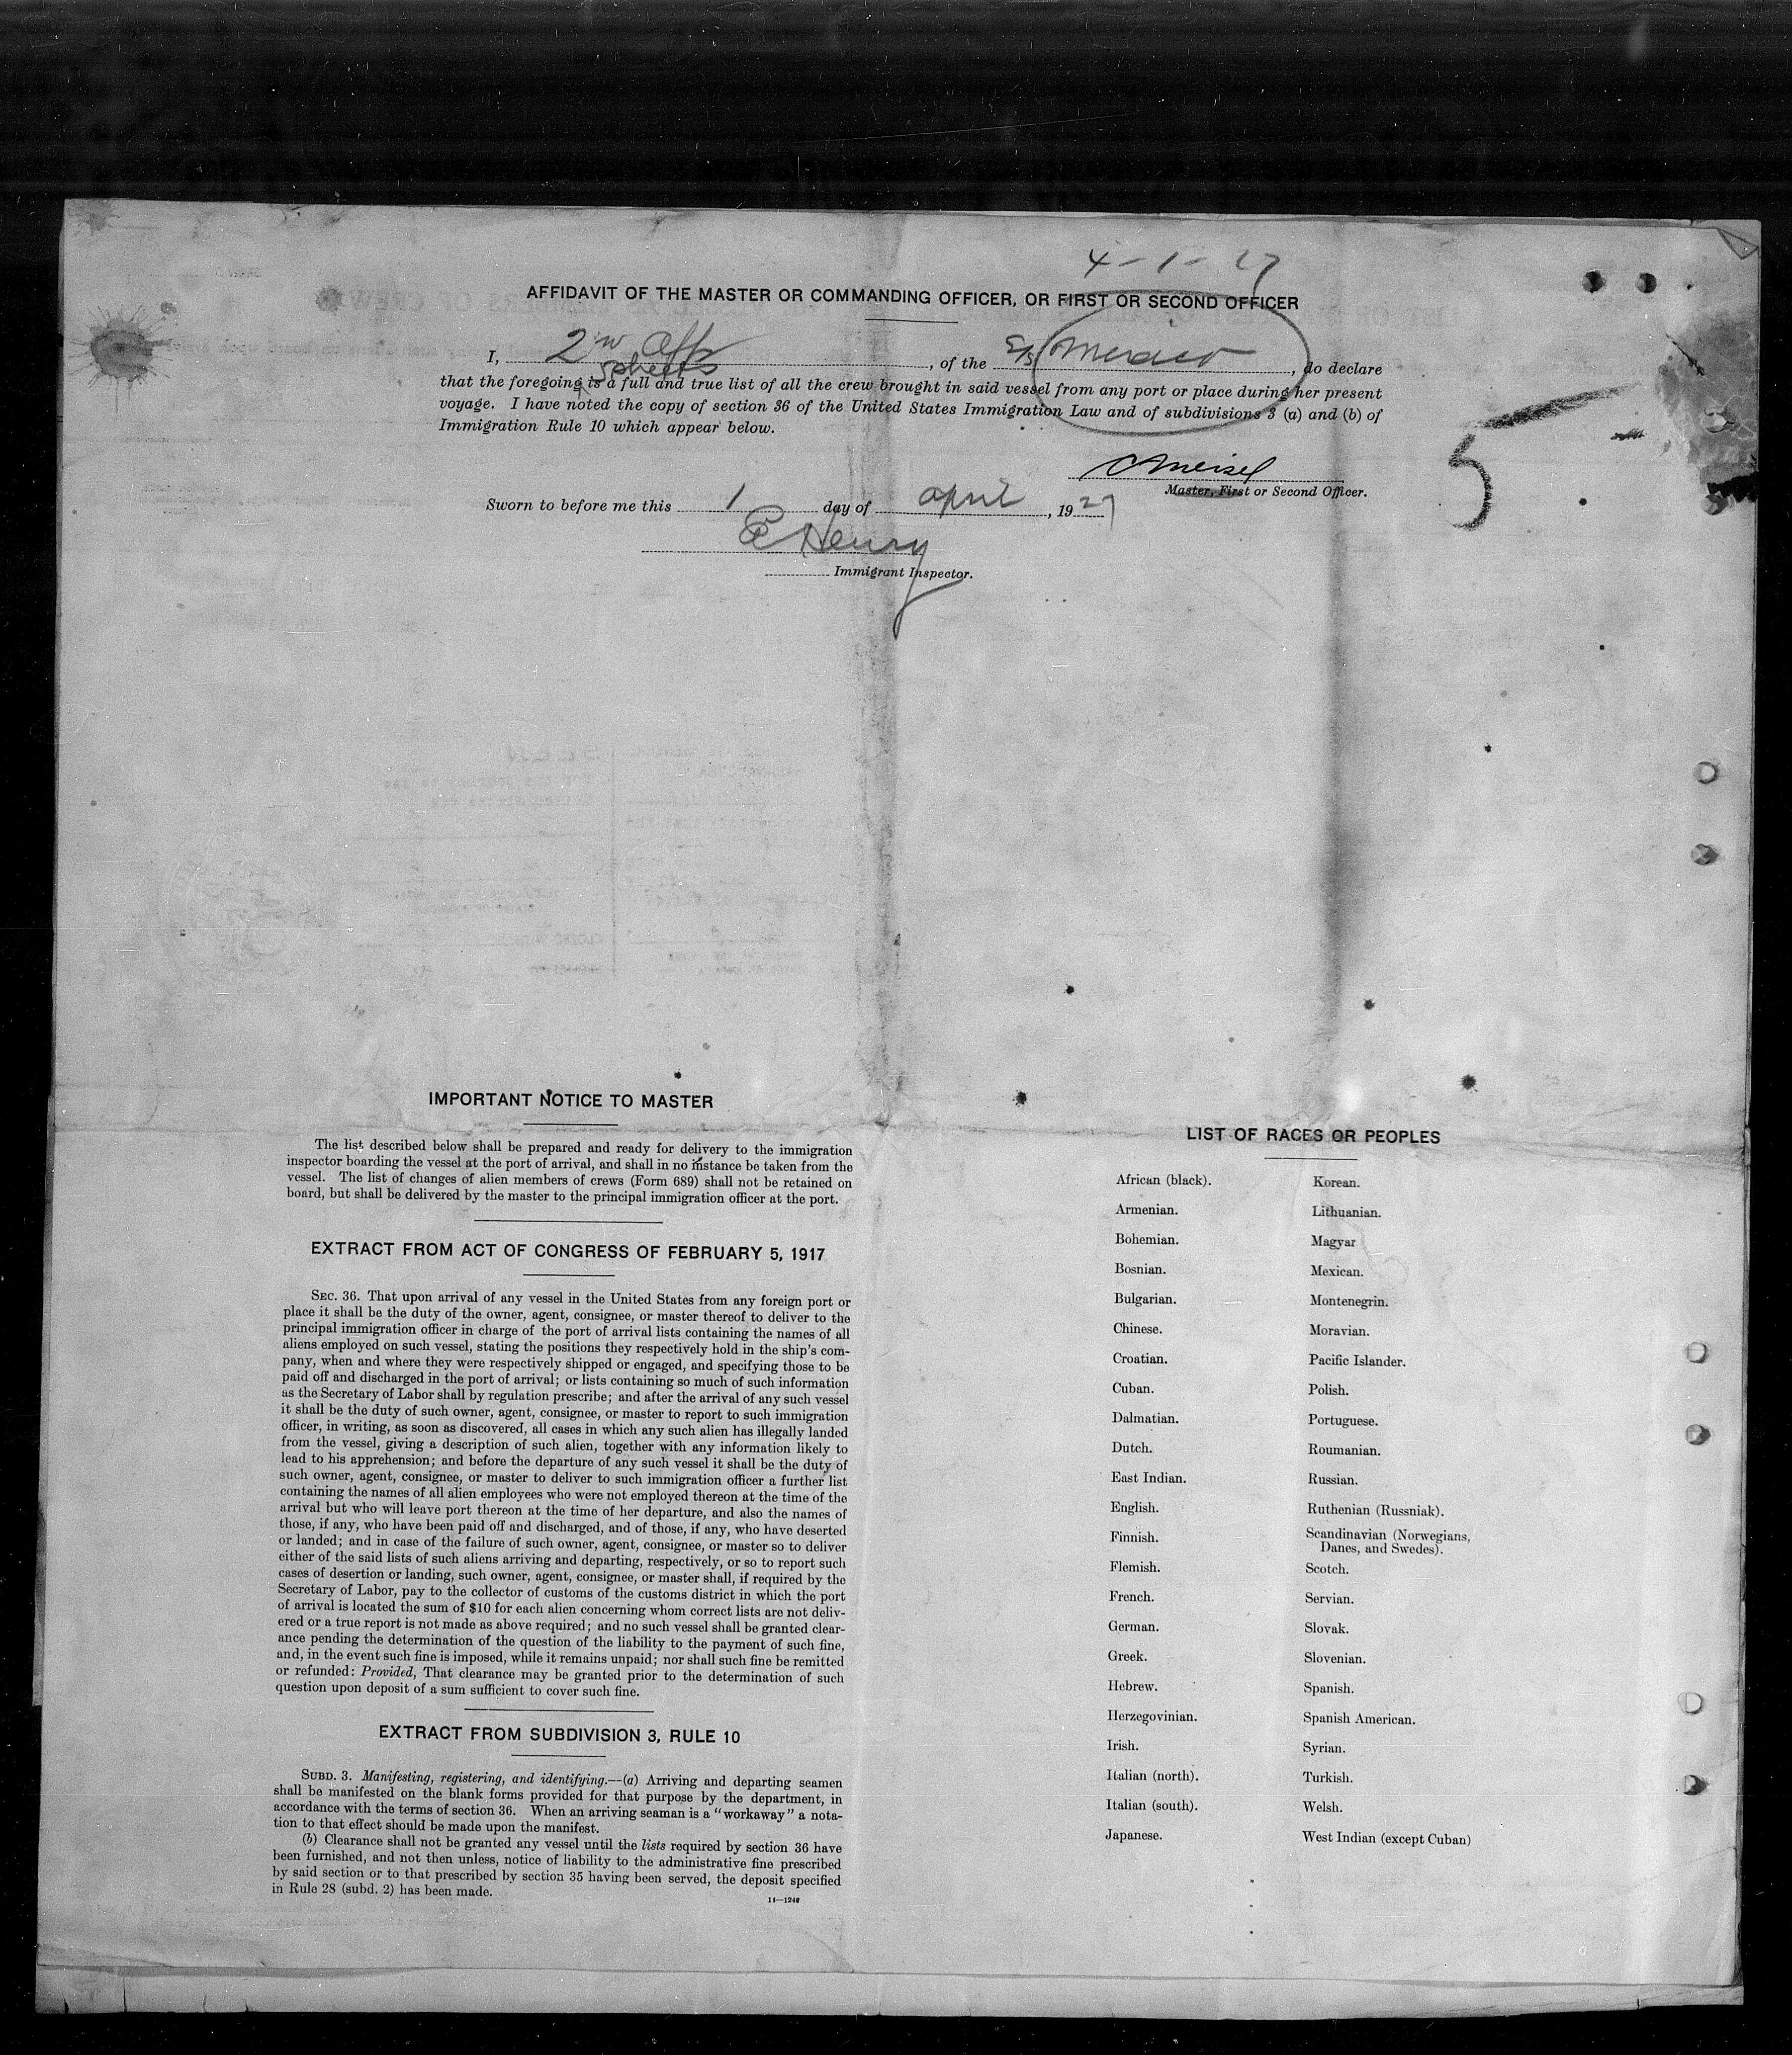 4-1-27
AFFIDAVIT OF THE MASTER OR COMMANDING OFFICER, OR FIRST OR SECOND OFFICER
I, 2nd Offr, of the S/S Mexico, do declare
5 sheets
that the foregoing is a full and true list of all the crew brought in said vessel from any port or place during her present
voyage. I have noted the copy of section 36 of the United States Immigration Law and of subdivisions 3 (a) and (b) of
Immigration Rule 10 which appear below.
5
C Meisel
Master, First or Second Officer.
Sworn to before me this 1 day of april, 1927
Henry
Immigrant Inspector.
IMPORTANT NOTICE TO MASTER
The list described below shall be prepared and ready for delivery to the immigration
inspector boarding the vessel at the port of arrival, and shall in no instance be taken from the
vessel. The list of changes of alien members of crews (Form 689) shall not be retained on
board, but shall be delivered by the master to the principal immigration officer at the port.
EXTRACT FROM ACT OF CONGRESS OF FEBRUARY 5, 1917
SEC. 36. That upon arrival of any vessel in the United States from any foreign port or
place it shall be the duty of the owner, agent, consignee, or master thereof to deliver to the
principal immigration officer in charge of the port of arrival lists containing the names of all
aliens employed on such vessel, stating the positions they respectively hold in the ship's com-
pany, when and where they were respectively shipped or engaged, and specifying those to be
paid off and discharged in the port of arrival; or lists containing so much of such information
as the Secretary of Labor shall by regulation prescribe; and after the arrival of any such vessel
it shall be the duty of such owner, agent, consignee, or master to report to such immigration
officer, in writing, as soon as discovered, all cases in which any such alien has illegally landed
from the vessel, giving a description of such alien, together with any information likely to
lead to his apprehension; and before the departure of any such vessel it shall be the duty of
such owner, agent, consignee, or master to deliver to such immigration officer a further list
containing the names of all alien employees who were not employed thereon at the time of the
arrival but who will leave port thereon at the time of her departure, and also the names of
those, if any, who have been paid off and discharged, and of those, if any, who have deserted
or landed; and in case of the failure of such owner, agent, consignee, or master so to deliver
either of the said lists of such aliens arriving and departing, respectively, or so to report such
cases of desertion or landing, such owner, agent, consignee, or master shall, if required by the
Secretary of Labor, pay to the collector of customs of the customs district in which the port
of arrival is located the sum of $10 for each alien concerning whom correct lists are not deliv-
ered or a true report is not made as above required; and no such vessel shall be granted clear-
ance pending the determination of the question of the liability to the payment of such fine,
and, in the event such fine is imposed, while it remains unpaid; nor shall such fine be remitted
or refunded: Provided, That clearance may be granted prior to the determination of such
question upon deposit of a sum sufficient to cover such fine.
EXTRACT FROM SUBDIVISION 3, RULE 10
SUBD. 3. Manifesting, registering, and identifying.—(a) Arriving and departing seamen
shall be manifested on the blank forms provided for that purpose by the department, in
accordance with the terms of section 36. When an arriving seaman is a "workaway" a nota-
tion to that effect should be made upon the manifest.
(b) Clearance shall not be granted any vessel until the lists required by section 36 have
been furnished, and not then unless, notice of liability to the administrative fine prescribed
by said section or to that prescribed by section 35 having been served, the deposit specified
in Rule 28 (subd. 2) has been made.
14—1240
LIST OF RACES OR PEOPLES
African (black).
Armenian.
Bohemian.
Bosnian.
Bulgarian.
Chinese.
Croatian.
Cuban.
Dalmatian.
Dutch.
East Indian.
English.
Finnish.
Flemish.
French.
German.
Greek.
Hebrew.
Herzegovinian.
Irish.
Italian (north).
Italian (south).
Japanese.
Korean.
Lithuanian.
Magyar
Mexican.
Montenegrin.
Moravian.
Pacific Islander.
Polish.
Portuguese.
Roumanian.
Russian.
Ruthenian (Russniak).
Scandinavian (Norwegians,
Danes, and Swedes).
Scotch.
Servian.
Slovak.
Slovenian.
Spanish.
Spanish American.
Syrian.
Turkish.
Welsh.
West Indian (except Cuban)